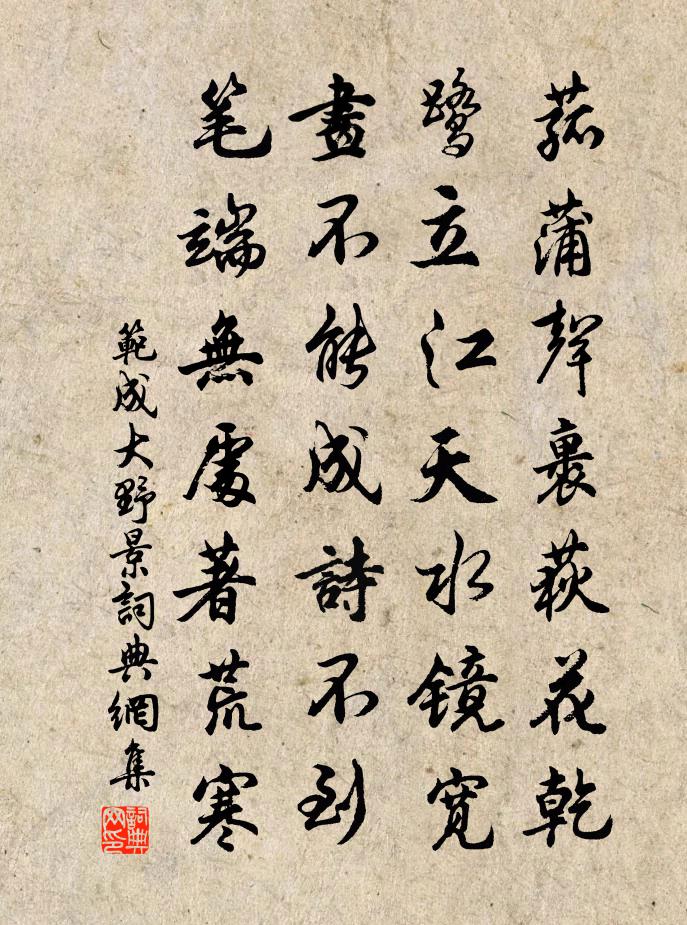 菰蒲聲裏荻花乾
鷺立江天水镜寬
畫不能成詩不到
笔端無處著荒寒
範成大野景詞典網集
詞典网印